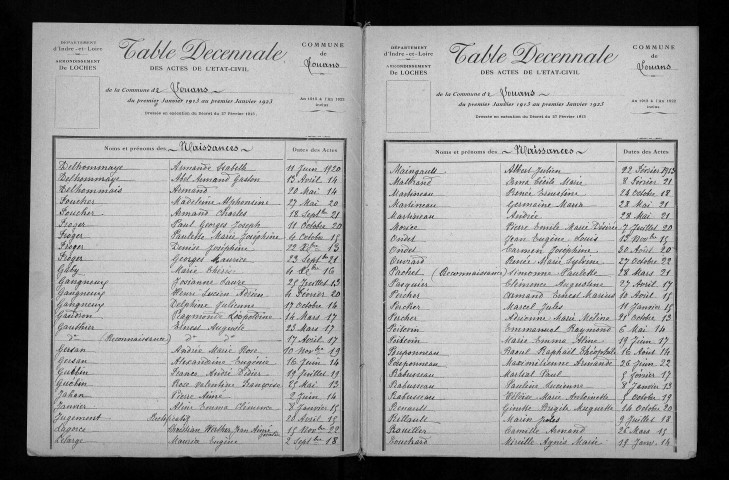 DÉPARTEMENT
d'Indre-et-Loire
ARRONDISSEMENT
De LOCHES
Table Decennale
DES ACTES DE L'ETAT-CIVIL
COMMUNE
de
Vouans
de la Commune de Vouans
du premier Janvier 1913 au premier Janvier 1923
Dressée en exécution du Décret du 27 Février 1913
An 1913 à l'An 1923
inclus
Noms et prénoms des Naissances Dates des Actes
Delhommaye Armande Isabelle 11 Juin 1920
Delhommaye Abel Armand Gaston 12 Avril 14
Delhommais Armand 20 Mai 14
Foucher Madeleine Alphonsine 27 Mai 20
Foucher Armand Charles 18 Septbre 21
Froger Paul Georges Joseph 11 Octobre 20
Froger Paulette Marie Joséphine 4 Octobre 15
Froger Denise Joséphine 22 13
Froger Georges Maurice 23 Septbre 21
Gaby Marie Thérèse 4 16
Gangneux Josianne Laure 25 Juillet 13
Gangneux Henri Lucien Adrien 4 Février 20
Gangneux Delphine Julienne 17 Octobre 14
Gaudron Raymonde Léopoldine 14 Mars 17
Gauthier Ernest Auguste 23 Mars 17
do (Reconnaissance) do do 17 Avril 17
Gersan Andrée Marie Rose 10 Novbre 19
Gersan Alexandrine Eugénie 16 Juin 14
Guebin Francs André Didier 19 Juillet 19
Guebin Rose Valentine Françoise 25 Mai 13
Jahan Pierre Aimé 2 Juin 14
Janvier Aline Emma Clémence 8 Janvier 15
Jugement Rectificatif 28 Avril 15
Lagorce Christian Jean Aimé 15 Novbre 22
Lelarge Maurice Eugène 2 Septbre 18
DÉPARTEMENT
d'Indre-et-Loire
ARRONDISSEMENT
De LOCHES
Table Decennale
DES ACTES DE L'ETAT-CIVIL
COMMUNE
de
Vouans
de la Commune de Vouans
du premier Janvier 1913 au premier Janvier 1923
Dressée en exécution du Décret du 27 Février 1913
An 1913 à l'An 1923
inclus
Noms et prénoms des Naissances Dates des Actes
Maingault Albert Julien 22 Février 1913
Maltrand Irma Cécile Marie 8 Février 21
Martineau Renée Ernestine 24 Octobre 18
Martineau Germaine Maria 28 Mai 21
Martineau Andrée 28 Mai 21
Morice Pierre Emile Marie Désiré 7 Juillet 20
Ondet Jean Eugène Louis 13 Novbre 15
Ondet Carmen Joséphine 30 Août 20
Ouvrard Renée Marie Sylvine 27 Octobre 22
(Reconnaissance) Simonne Paulette 28 Mars 21
Pasquier Clémence Augustine 27 Avril 17
Percher Armand Ernest Marius 10 Août 15
Percher Marcel Jules 11 Janvier 15
Percher Adrienne Marie Méline 25 Octobre 13
Poitevin Emmanuel Raymond 6 Mai 14
Poitevin Marie Emma Aline 19 Juin 17
Pouponneau Raoul Raphaël Théophile 16 Août 14
Pouponneau Maximilienne Armande 26 Juin 22
Rabusseau Martial Paul 5 Février 17
Rabusseau Pauline Lucienne 8 Janvier 13
Rabusseau Héloïse Marie Antoinette 5 Octobre 19
Renault Ginette Brigite Huguette 14 Octobre 20
Marin Jules 9 Juillet 18
Rouiller Camille Armand 26 Mars 15
Bouchard Mireille Agnès Marie 19 Janv. 14